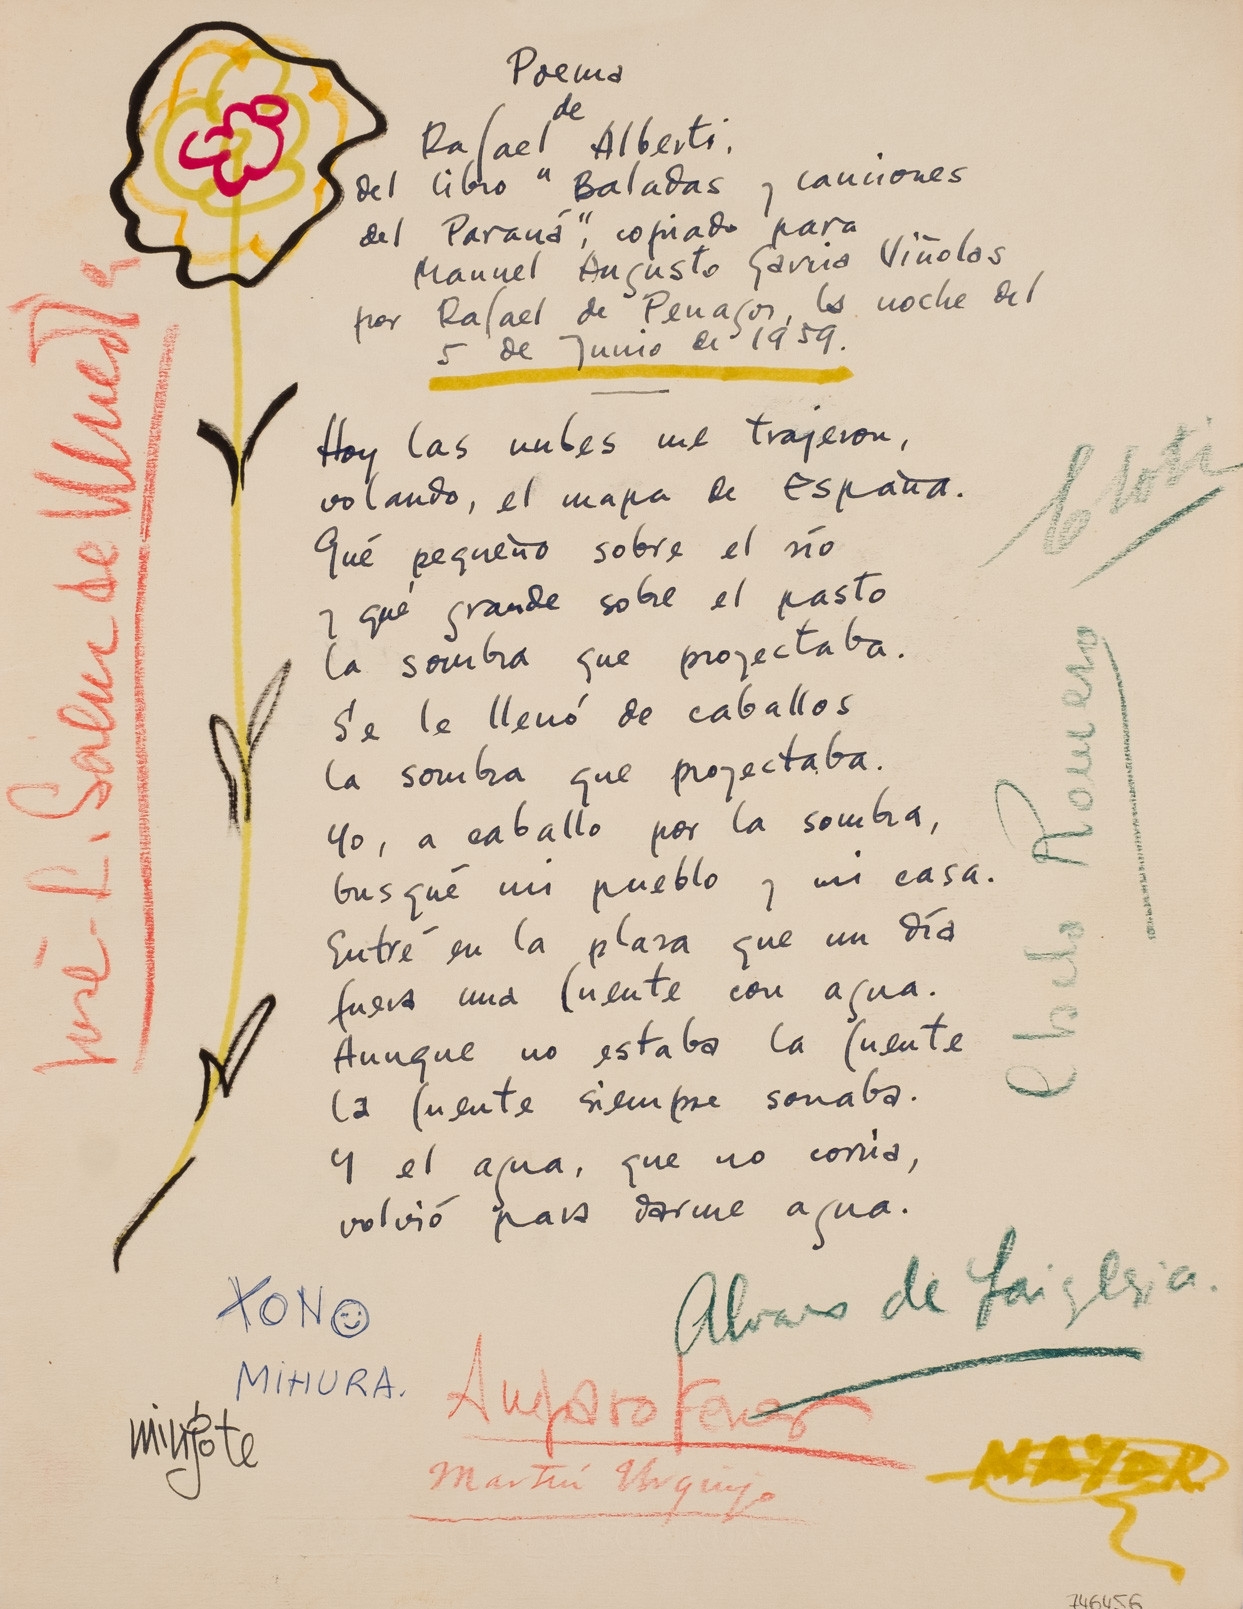 Poema
de
Rafael Alberti,
del libro "Baladas y canciones
del Paraná", copiado para
Manuel Augusto García Viñolas
por Rafael de Penagos, la noche del
5 de Junio de 1959.
Hoy las nubes me trajeron,
volando, el mapa de España.
Qué pequeño sobre el río
y qué grande sobre el pasto
la sombra que proyectaba.
Se le llenó de caballos
la sombra que proyectaba.
Yo, a caballo por la sombra,
busqué mi pueblo y mi casa.
Entré en la plaza que un día
fuera una fuente con agua.
Aunque no estaba la fuente
la fuente siempre sonaba.
Y el agua, que no corría,
volvió para darme agua.
José-L. Sáenz de
Romero
Alvaro de Laiglesia.
TONO
MIHURA.
mingote
Amparo
Martín Urquijo
MAYER
746456